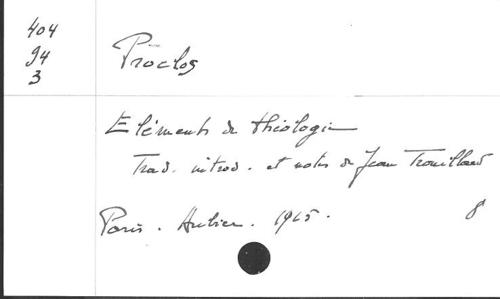 404
94
3
Proclos
Eléments de théologie
Trad. introd. et notes de Jean Trouillard
Paris. Aubier. 1965.
8